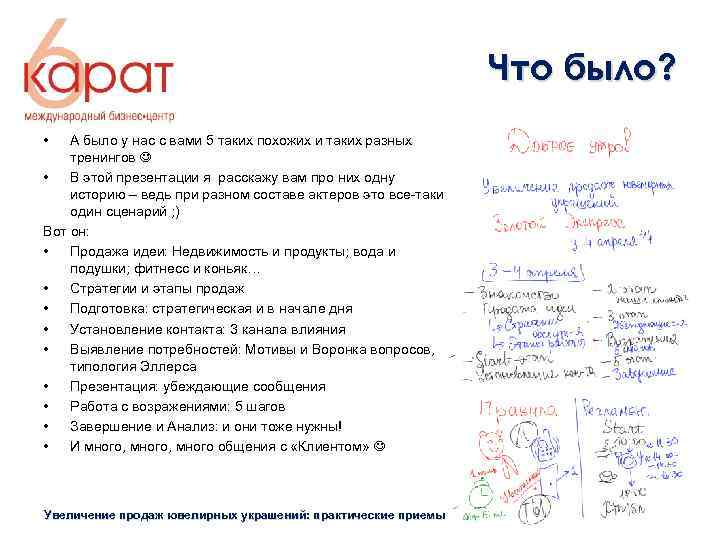 6
карат
международный бизнес•центр
Что было?
• А было у нас с вами 5 таких похожих и таких разных
тренингов ☺
• В этой презентации я расскажу вам про них одну
историю – ведь при разном составе актеров это все-таки
один сценарий ; )
Вот он:
• Продажа идеи: Недвижимость и продукты; вода и
подушки; фитнесс и коньяк…
• Стратегии и этапы продаж
• Подготовка: стратегическая и в начале дня
• Установление контакта: 3 канала влияния
• Выявление потребностей: Мотивы и Воронка вопросов,
типология Эллерса
• Презентация: убеждающие сообщения
• Работа с возражениями: 5 шагов
• Завершение и Анализ: и они тоже нужны!
• И много, много, много общения с «Клиентом» ☺
Увеличение продаж ювелирных украшений: практические приемы
Доброе утро!
Увеличение продаж ювелирных
украшений
Золотой Экспресс
3 4 апреля
3-4 апреля
- Знакомство
- Продажа идеи
- Start-этап
- 2 этап
- 3 этап
- Завершение
Правила
Регламент
Start
10.00
Finish